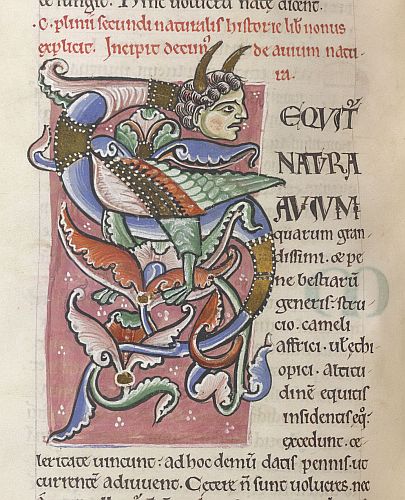 Hinc uolucrū
C. plinii secundi naturalis historie lib nonus
explicit. Incipit decim⁹ de auium natu
ra.
SEQVIT᷑
NATVRA
AVIVM
quarum gran
dissimi. & pe
ne bestiarū
generis. stru
cio. cameli
affrici. ul̄ ethi
opici. altitu
dinē equitis
insidentis eq̨
excedunt. ce
leritate uincunt. ad hoc demū datis pennis. ut
currentē adiuuent. Cetere n̄ sunt uolucres.